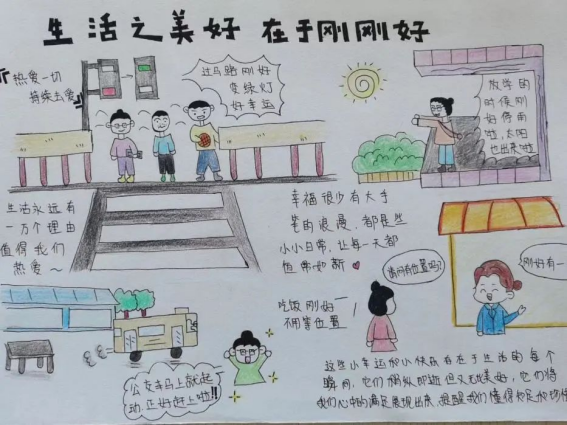 生活之美好 在于刚刚好
热爱一切
持续去爱
过马路刚好
变绿灯
好幸运
放学的
时候刚
好停雨
啦,太阳
也出来啦
生活永远有
一万个理由
值得我们
热爱~
幸福很少有大手
笔的浪漫,都是些
小小日常,让每一天都
恒常如新
请问有位置吗?
刚好有一
吃饭刚好
不用等位置
公交车马上就起
动,正好赶上啦!!
这些小幸运和小快乐存在于生活的每个
瞬间,它们稍纵即逝但又无比美好,它们将
我们心中的满足展现出来,提醒我们懂得知足和